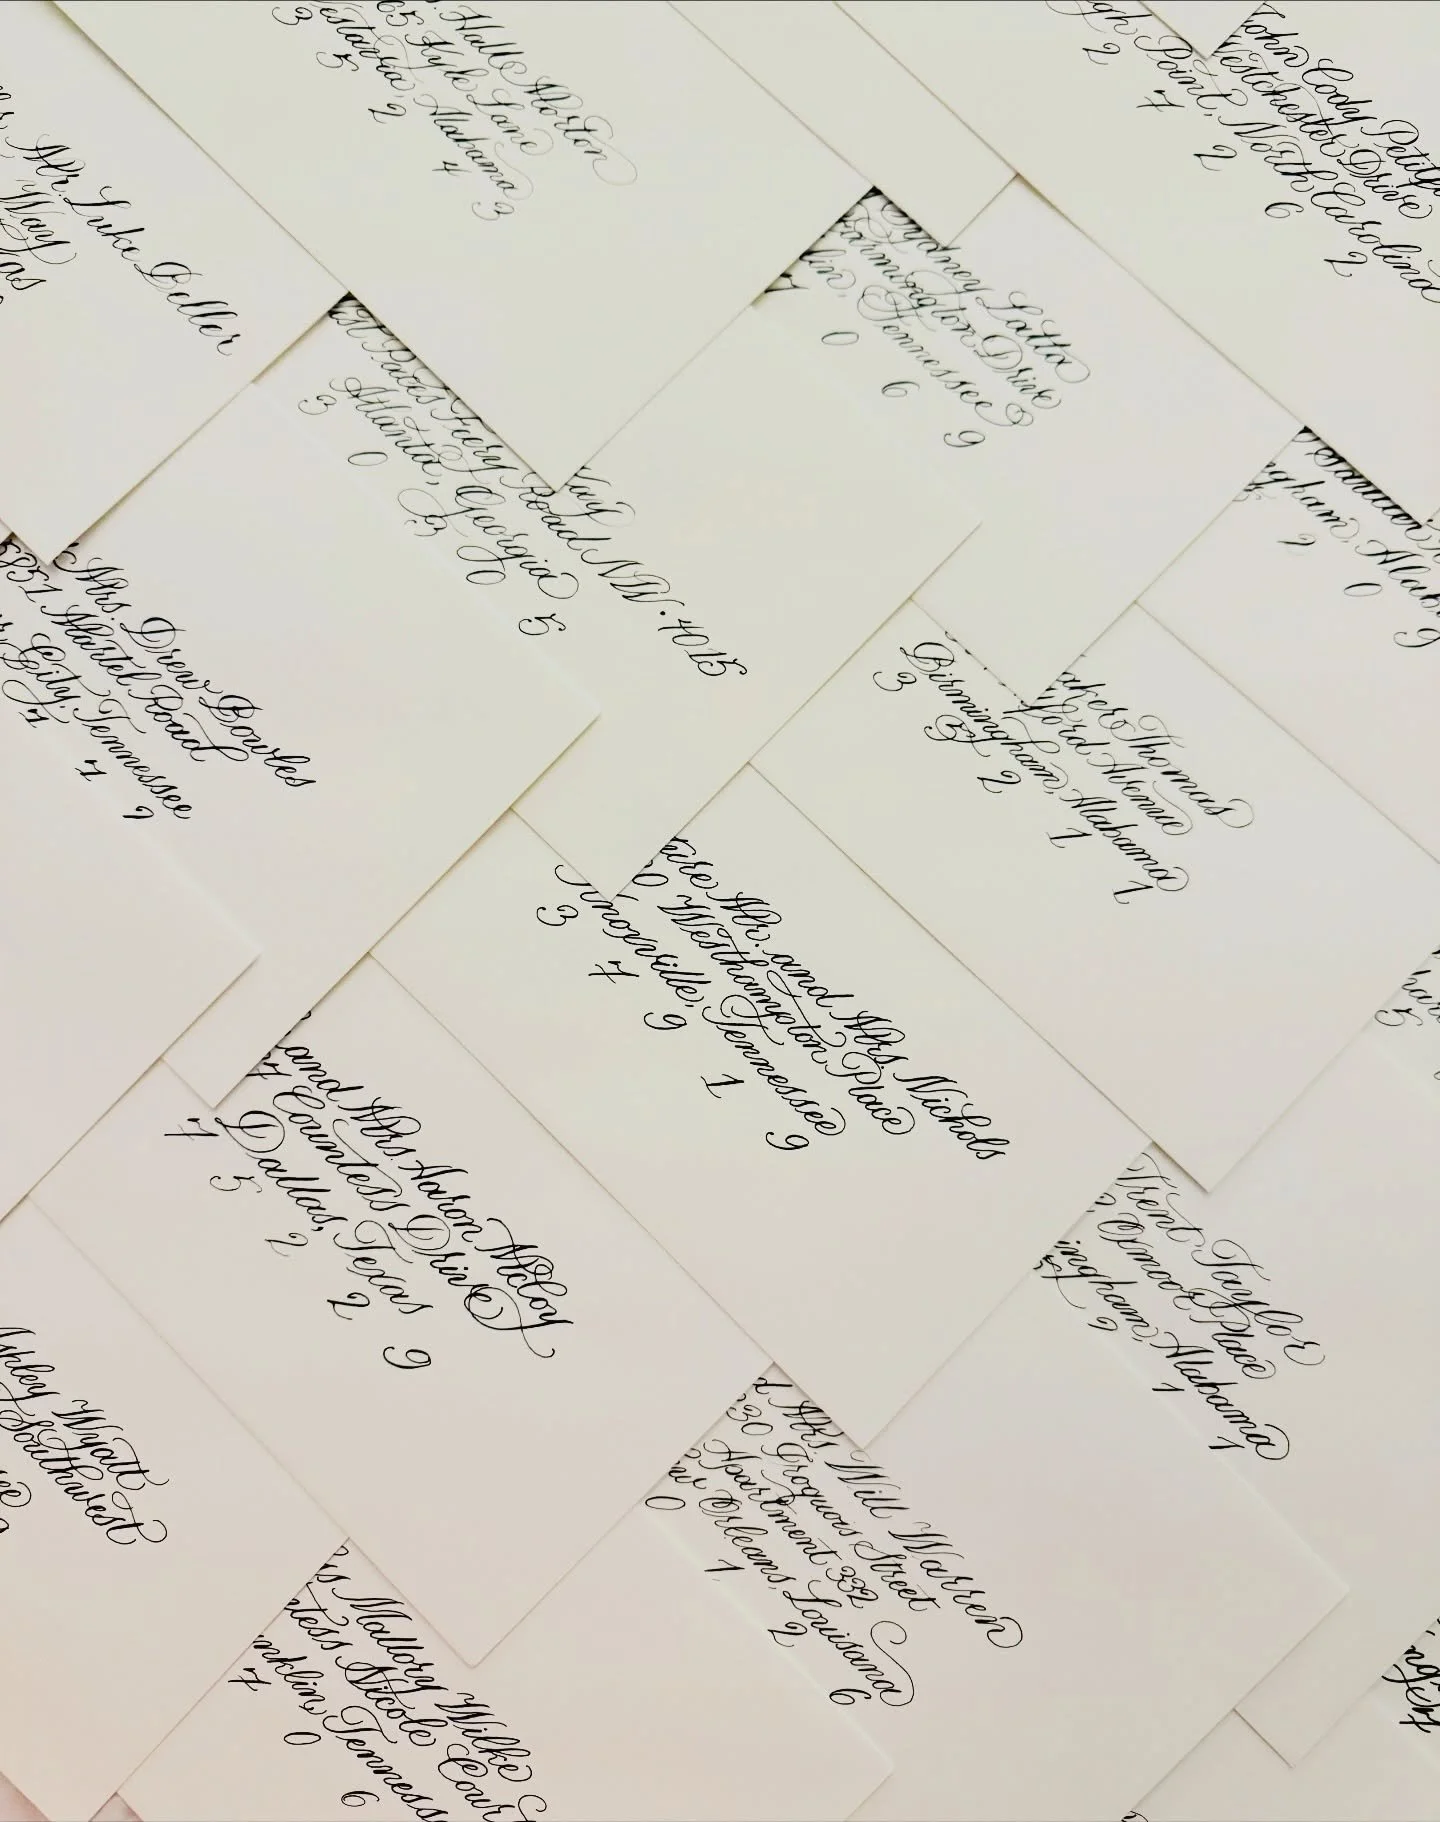 Hall Morton
65 Kyle Lane
Vestavia, Alabama
3 5 2 4 3
John Cody
Westchester Drive
Point, North Carolina
2 7 2 6 2
Mr. Luke Beller
Way
Sydney Latta
Farmington Drive
Tennessee
0 6 9
Paces Ferry Road NW · 4015
Atlanta, Georgia
3 0 3 0 5
2 0 9
Mrs. Drew Bowles
851 Martel Road
City, Tennessee
7 7 2
Thomas
Avenue
Birmingham, Alabama
3 5 2 1 1
Mr. and Mrs. Nichols
0 Westhampton Place
Knoxville, Tennessee
3 7 9 1 9
and Mrs. Aaron McCoy
7 Countess Drive
Dallas, Texas
7 5 2 2 9
Trent Taylor
Place
Alabama
2 1 1
Ashley Wyatt
Southwest
Mrs. Will Warren
30 Iroquois Street
Apartment 332
Orleans, Louisiana
0 1 2 6
Mallory Wilke
Nicole Court
7 0 6